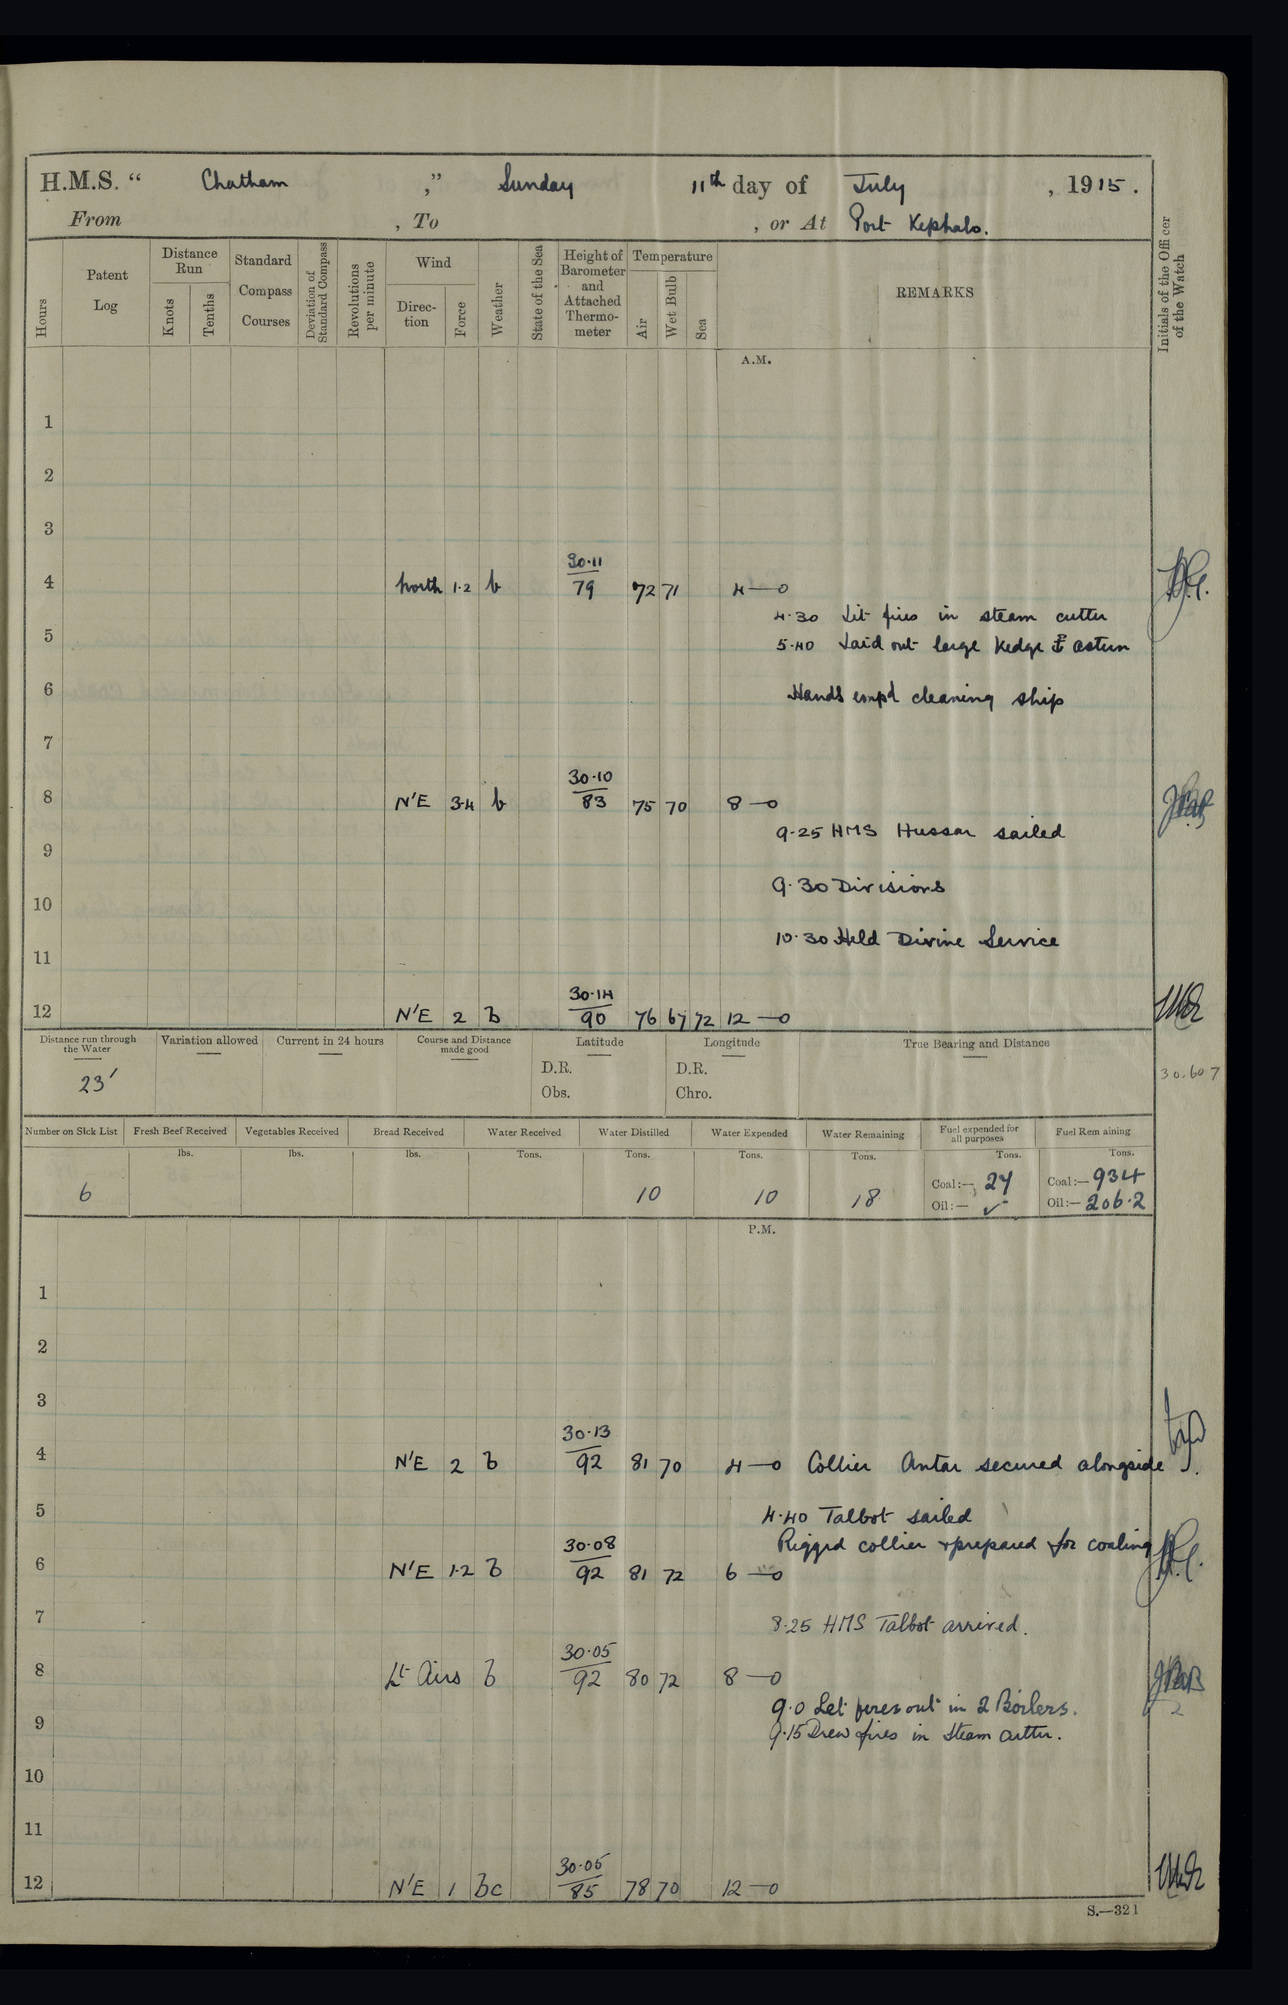 H.M.S. “ Chatham ,” Sunday 11th day of July , 1915.
From , To , or At Port Kephalo.
Hours
Patent Log
Distance Run
Knots
Tenths
Standard Compass Courses
Deviation of Standard Compass
Revolutions per minute
Wind
Direc-tion
Force
Weather
State of the Sea
Height of Barometer and Attached Thermo-meter
Temperature
Air
Wet Bulb
Sea
REMARKS
Initials of the Officer of the Watch
A.M.
1
2
3
4 North 1·2 b 30·11 79 72 71 4—0
4·30 Lit fires in steam cutter
5 5·40 Laid out large Kedge astern
6 Hands empd cleaning ship
7
8 N'E 3·4 b 30·10 83 75 70 8—0
9·25 HMS Hussar sailed
9
9·30 Divisions
10
10·30 Held Divine Service
11
12 N'E 2 b 30·14 90 76 67 72 12—0
Distance run through the Water
Variation allowed
Current in 24 hours
Course and Distance made good
Latitude
Longitude
True Bearing and Distance
23'
D.R. D.R.
Obs. Chro.
30.607
Number on Sick List
Fresh Beef Received
Vegetables Received
Bread Received
Water Received
Water Distilled
Water Expended
Water Remaining
Fuel expended for all purposes
Fuel Remaining
lbs. lbs. lbs. Tons. Tons. Tons. Tons. Tons. Tons.
6 10 10 18 Coal:— 27 Coal:— 934
Oil:— ✓ Oil:— 206·2
P.M.
1
2
3
4 N'E 2 b 30·13 92 81 70 4—0 Collier Antar secured alongside
5 4·40 Talbot sailed
Rigged collier & prepared for coaling
6 N'E 1·2 b 30·08 92 81 72 6—0
7 8·25 HMS Talbot arrived.
8 Lt Airs b 30·05 92 80 72 8—0
9·0 Let fires out in 2 Boilers.
9 9·15 Drew fires in Steam cutter.
10
11
12 N'E 1 bc 30·05 85 78 70 12—0
S.—321